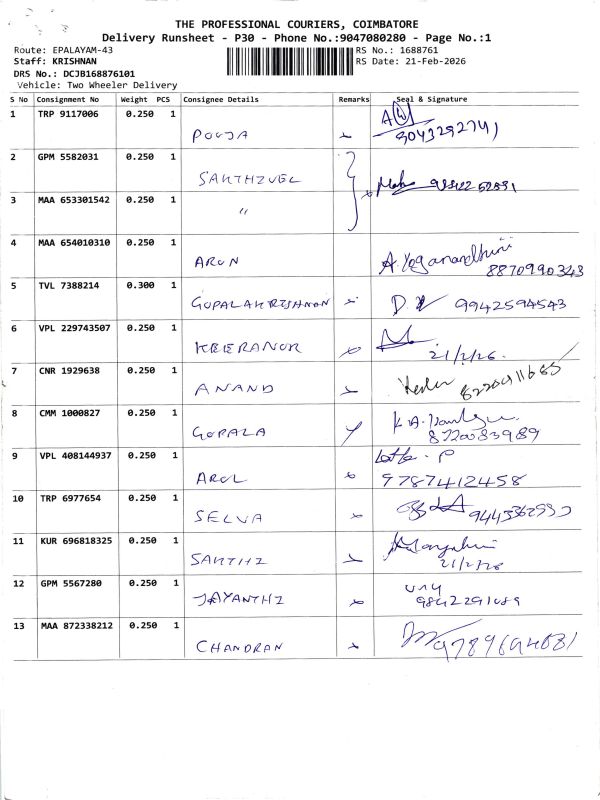 THE PROFESSIONAL COURIERS, COIMBATORE
Delivery Runsheet - P30 - Phone No.:9047080280 - Page No.:1
Route: EPALAYAM-43 RS No.: 1688761
Staff: KRISHNAN RS Date: 21-Feb-2026
DRS No.: DCJB168876101
Vehicle: Two Wheeler Delivery
S No Consignment No Weight PCS Consignee Details Remarks Seal & Signature
1 TRP 9117006 0.250 1 POOJA 9043292741
2 GPM 5582031 0.250 1 SAKTHIVEL
3 MAA 653301542 0.250 1 "
4 MAA 654010310 0.250 1 ARUN A. Yoganandhini
8870990323
5 TVL 7388214 0.300 1 GOPALAKRISHNAN 9942594543
6 VPL 229743507 0.250 1 KEERANUR
21/2/26.
7 CNR 1929638 0.250 1 ANAND
8 CMM 1000827 0.250 1 GOPALA
8720083989
9 VPL 408144937 0.250 1 AROL
9787412458
10 TRP 6977654 0.250 1 SELVA
11 KUR 696818325 0.250 1 SAKTHI
21/2/26
12 GPM 5567280 0.250 1 JAYANTHI
13 MAA 872338212 0.250 1 CHANDRAN 9789694681